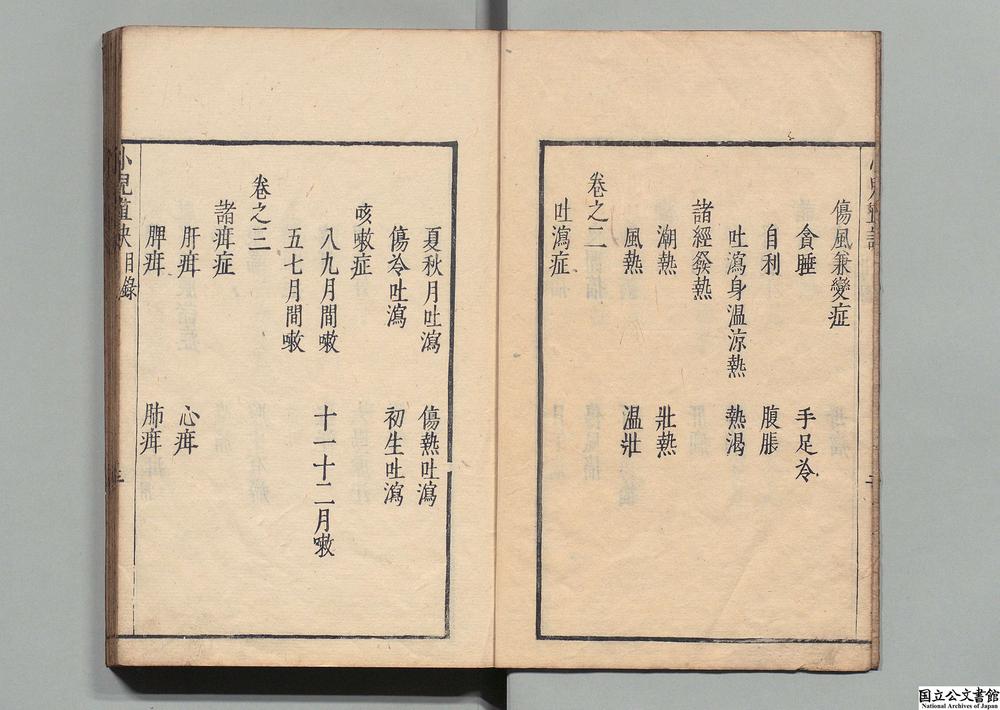 傷風兼變症
貪睡　手足冷
自利　腹脹
吐瀉身温涼熱　熱渴
諸經發熱
潮熱　壯熱
風熱　温壯
卷之二
吐瀉症
夏秋月吐瀉　傷熱吐瀉
傷冷吐瀉　初生吐瀉
咳嗽症
八九月間嗽　十一十二月嗽
五七月間嗽
卷之三
諸疳症
肝疳　心疳
脾疳　肺疳
小兒直訣目錄
国立公文書館
National Archives of Japan